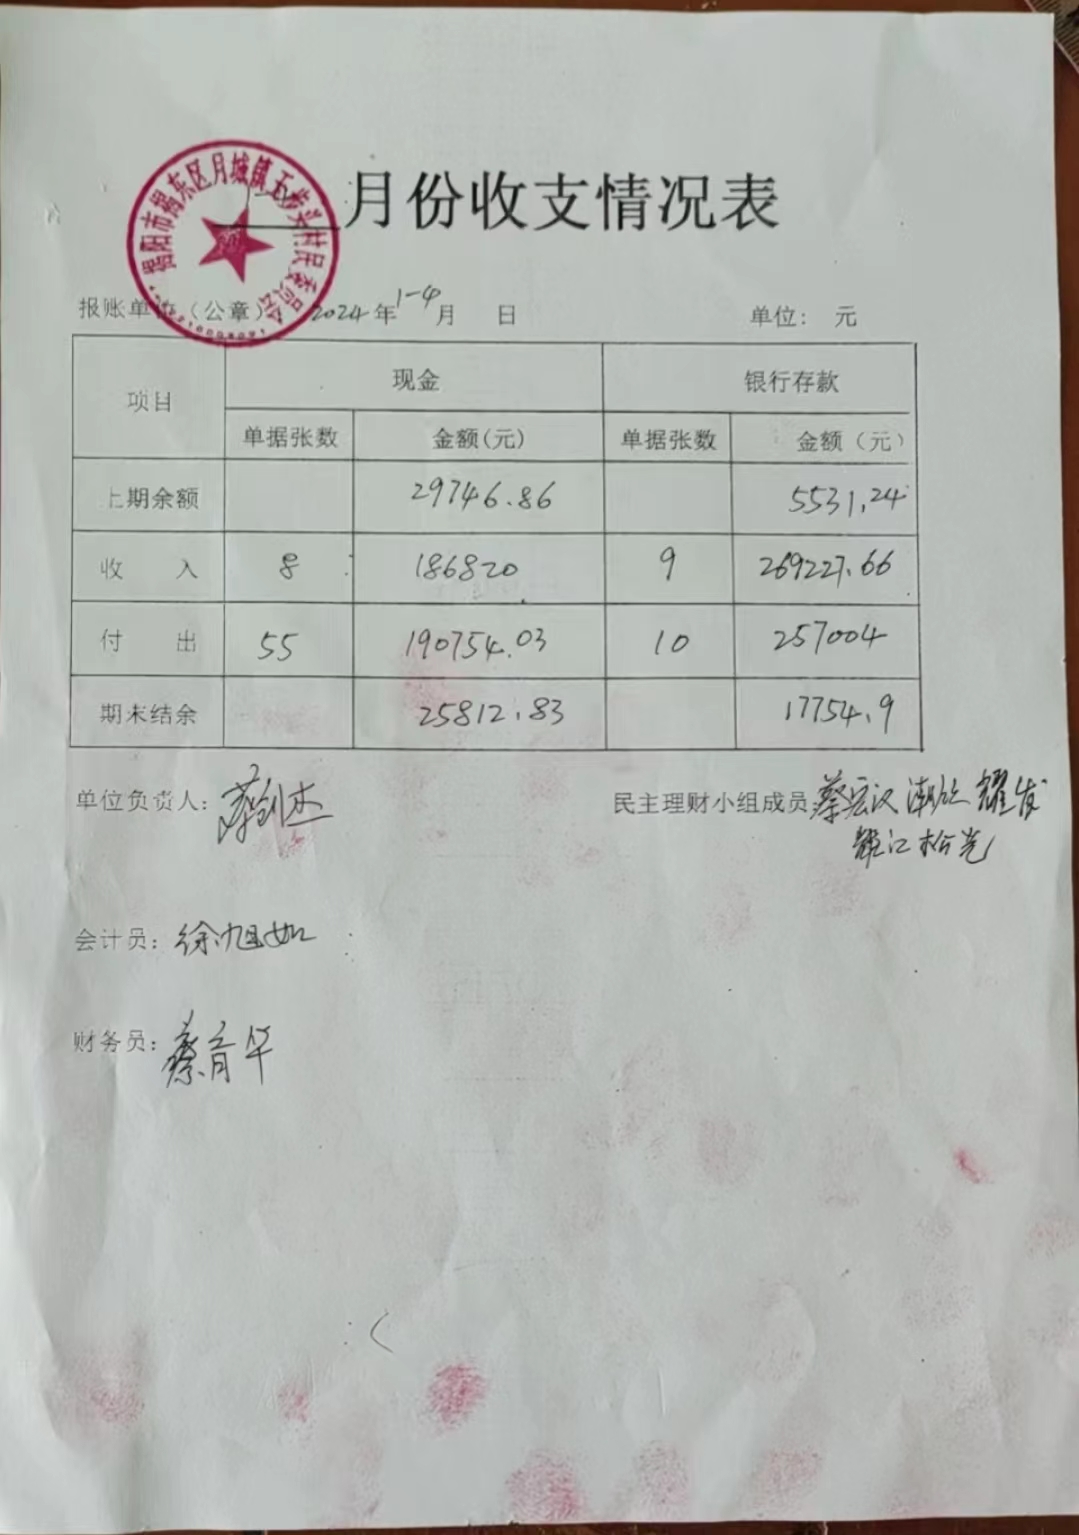 揭阳市揭东区月城镇玉步头村民委员会
月份收支情况表
报账单位（公章）： 2024年1-4月 日 单位： 元
项目 现金 银行存款
单据张数 金额(元) 单据张数 金额（元）
上期余额 29746.86 5531.24
收 入 8 186820 9 269227.66
付 出 55 190754.03 10 257004
期末结余 25812.83 17754.9
单位负责人： 民主理财小组成员 蔡宏汉 耀发
松光
会计员：徐旭如
财务员：蔡育华